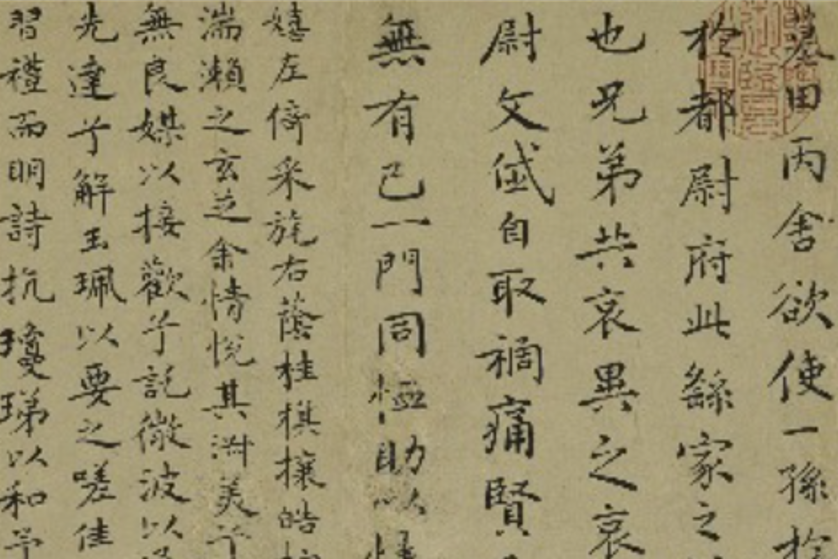 墓田丙舍欲使一孫於
於都尉府此繇家之
也兄弟共哀異之哀
尉文俶自取禍痛賢
無有已一門同恤助以
嬉左倚采旄右蔭桂棋攘皓
湍瀨之玄芝余情悅其淑美兮
無良媒以接歡兮託微波以
先達兮解玉珮以要之嗟佳
習禮而明詩抗瓊珶以和予